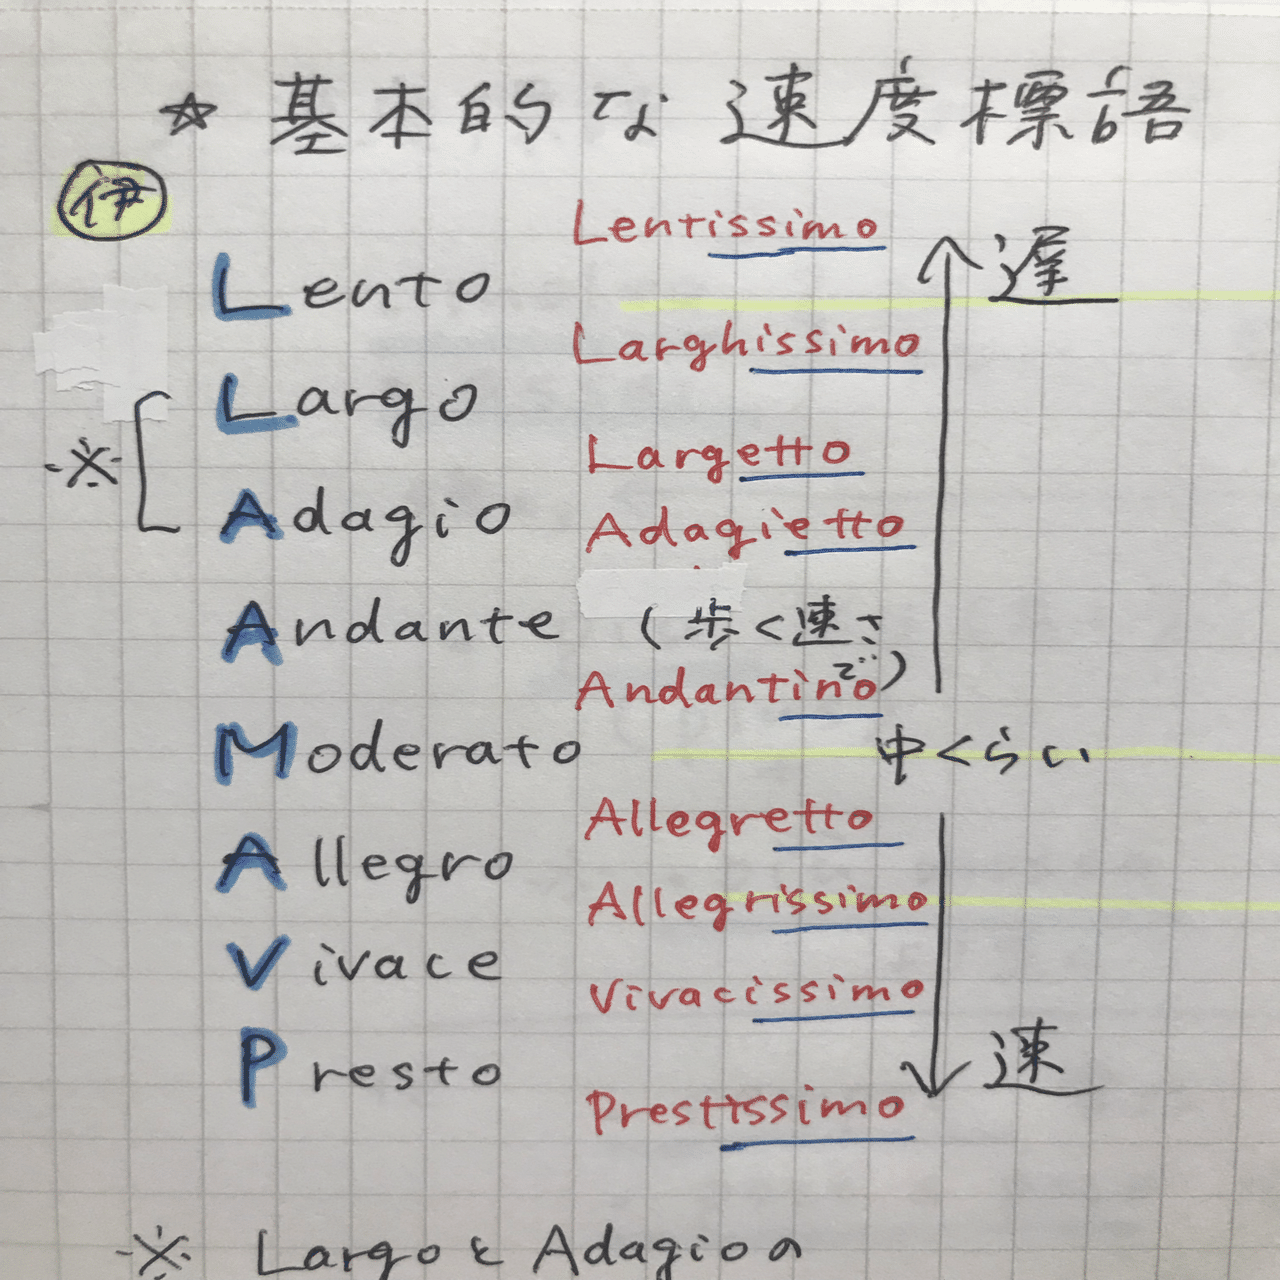 ☆ 基本的な速度標語
伊
Lentissimo
遅
Lento
Larghissimo
Largo
※
Largetto
Adagio
Adagietto
Andante (歩く速さで)
Andantino
Moderato
中くらい
Allegretto
Allegro
Allegrissimo
Vivace
Vivacissimo
速
Presto
Prestissimo
※ LargoとAdagioの